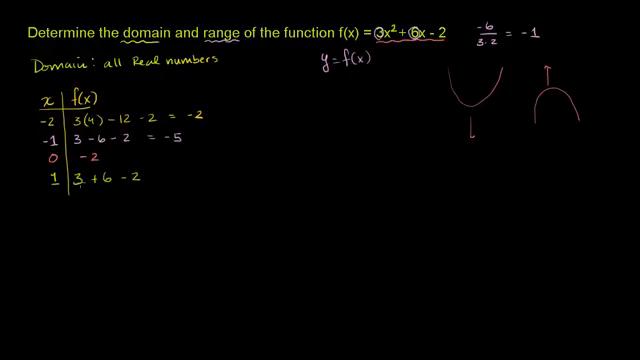 Determine the domain and range of the function f(x) = 3x² + 6x - 2
-6
3·2
= -1
Domain: all Real numbers
y = f(x)
x f(x)
-2 3(4) - 12 - 2 = -2
-1 3 - 6 - 2 = -5
0 -2
1 3 + 6 - 2